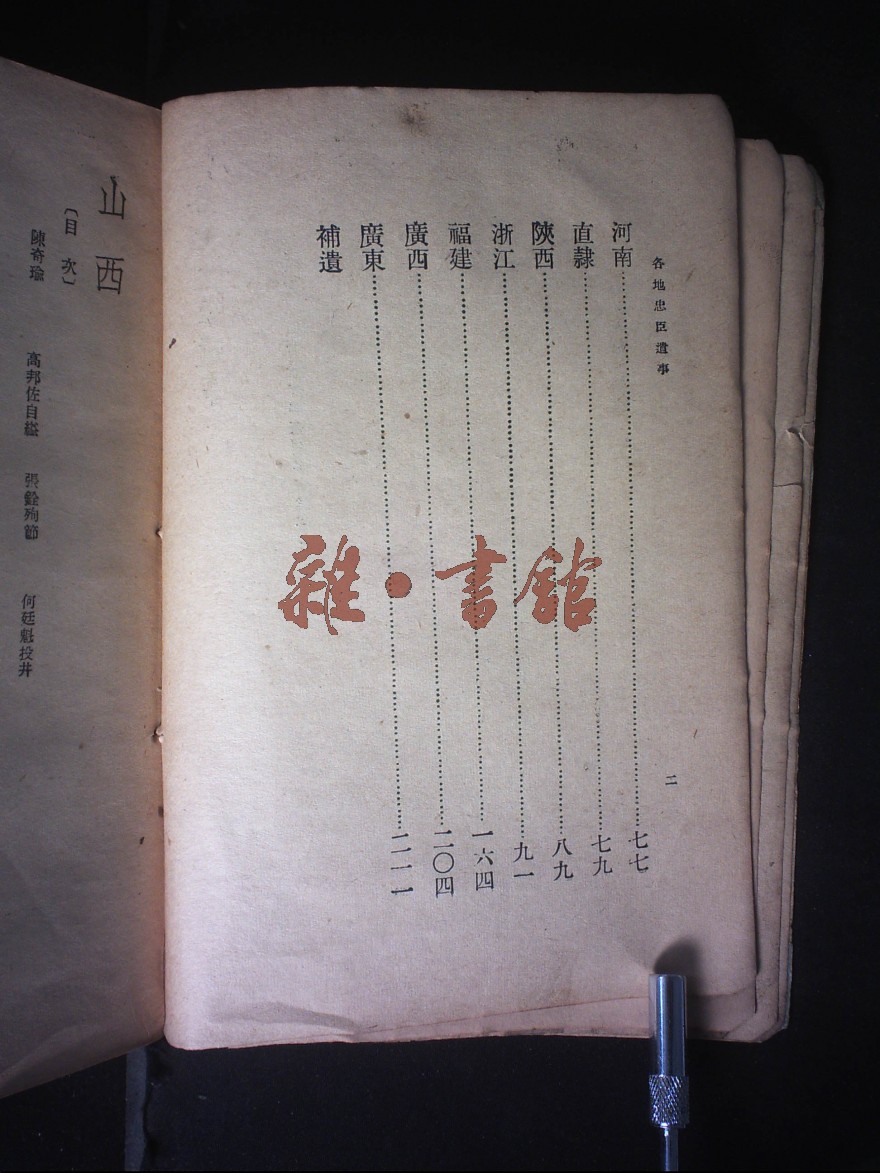 各地忠臣遺事
二
河南……七七
直隸……七九
陝西……八九
浙江……九一
福建……一六四
廣西……二〇四
廣東……二一一
補遺
雜·書館
山西
〔目次〕
陳奇瑜 高邦佐自縊 張銓殉節 何廷魁投井